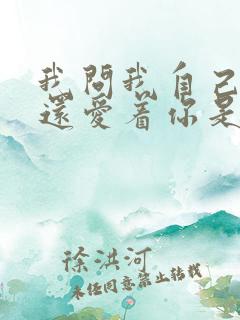 我問我自己
還愛着你是
徐洪河
未经同意禁止转载